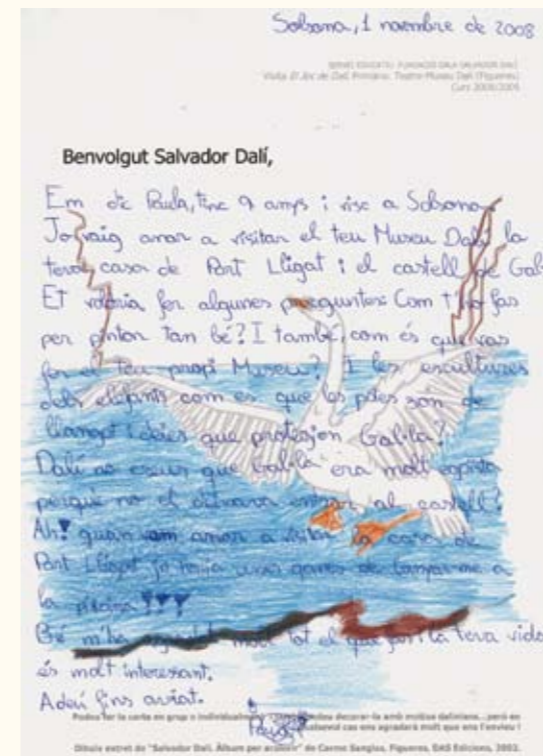 Solsona, 1 novembre de 2008
SERVEI EDUCATIU FUNDACIÓ GALA-SALVADOR DALÍ
Visita El Joc de Dalí. Primària. Teatre-Museu Dalí (Figueres)
Curs 2008/2009
Benvolgut Salvador Dalí,
Em dic Paula, tinc 9 anys i visc a Solsona.
Jo vaig anar a visitar el teu Museu Dalí, la
teva casa de Port Lligat i el castell de Gala.
Et voldria fer algunes preguntes: Com t'ho fas
per pintar tan bé? I també, com és que vas
fer el teu propi Museu? I les escultures
dels elefants com es que les potes són de
i deies que protegien Gal·la?
Dalí no creus que Gal·la era molt egoista
perquè no et deixava entrar al castell?
Ah! quan vam anar a visitar la casa de
Port Lligat jo tenia unes ganes de llançar-me a
la piscina!!!
Bé m'ha agradat molt tot el que fas i la teva vida
és molt interessant.
Adéu fins aviat.
Paula
Podeu fer la carta en grup o individualment. També podeu decorar-la amb motius dalinians...però en
qualsevol cas ens agradarà molt que ens l'envieu !
Dibuix extret de "Salvador Dalí. Àlbum per acolorir" de Carme Sanglas. Figueres, DAS Edicions, 2003.